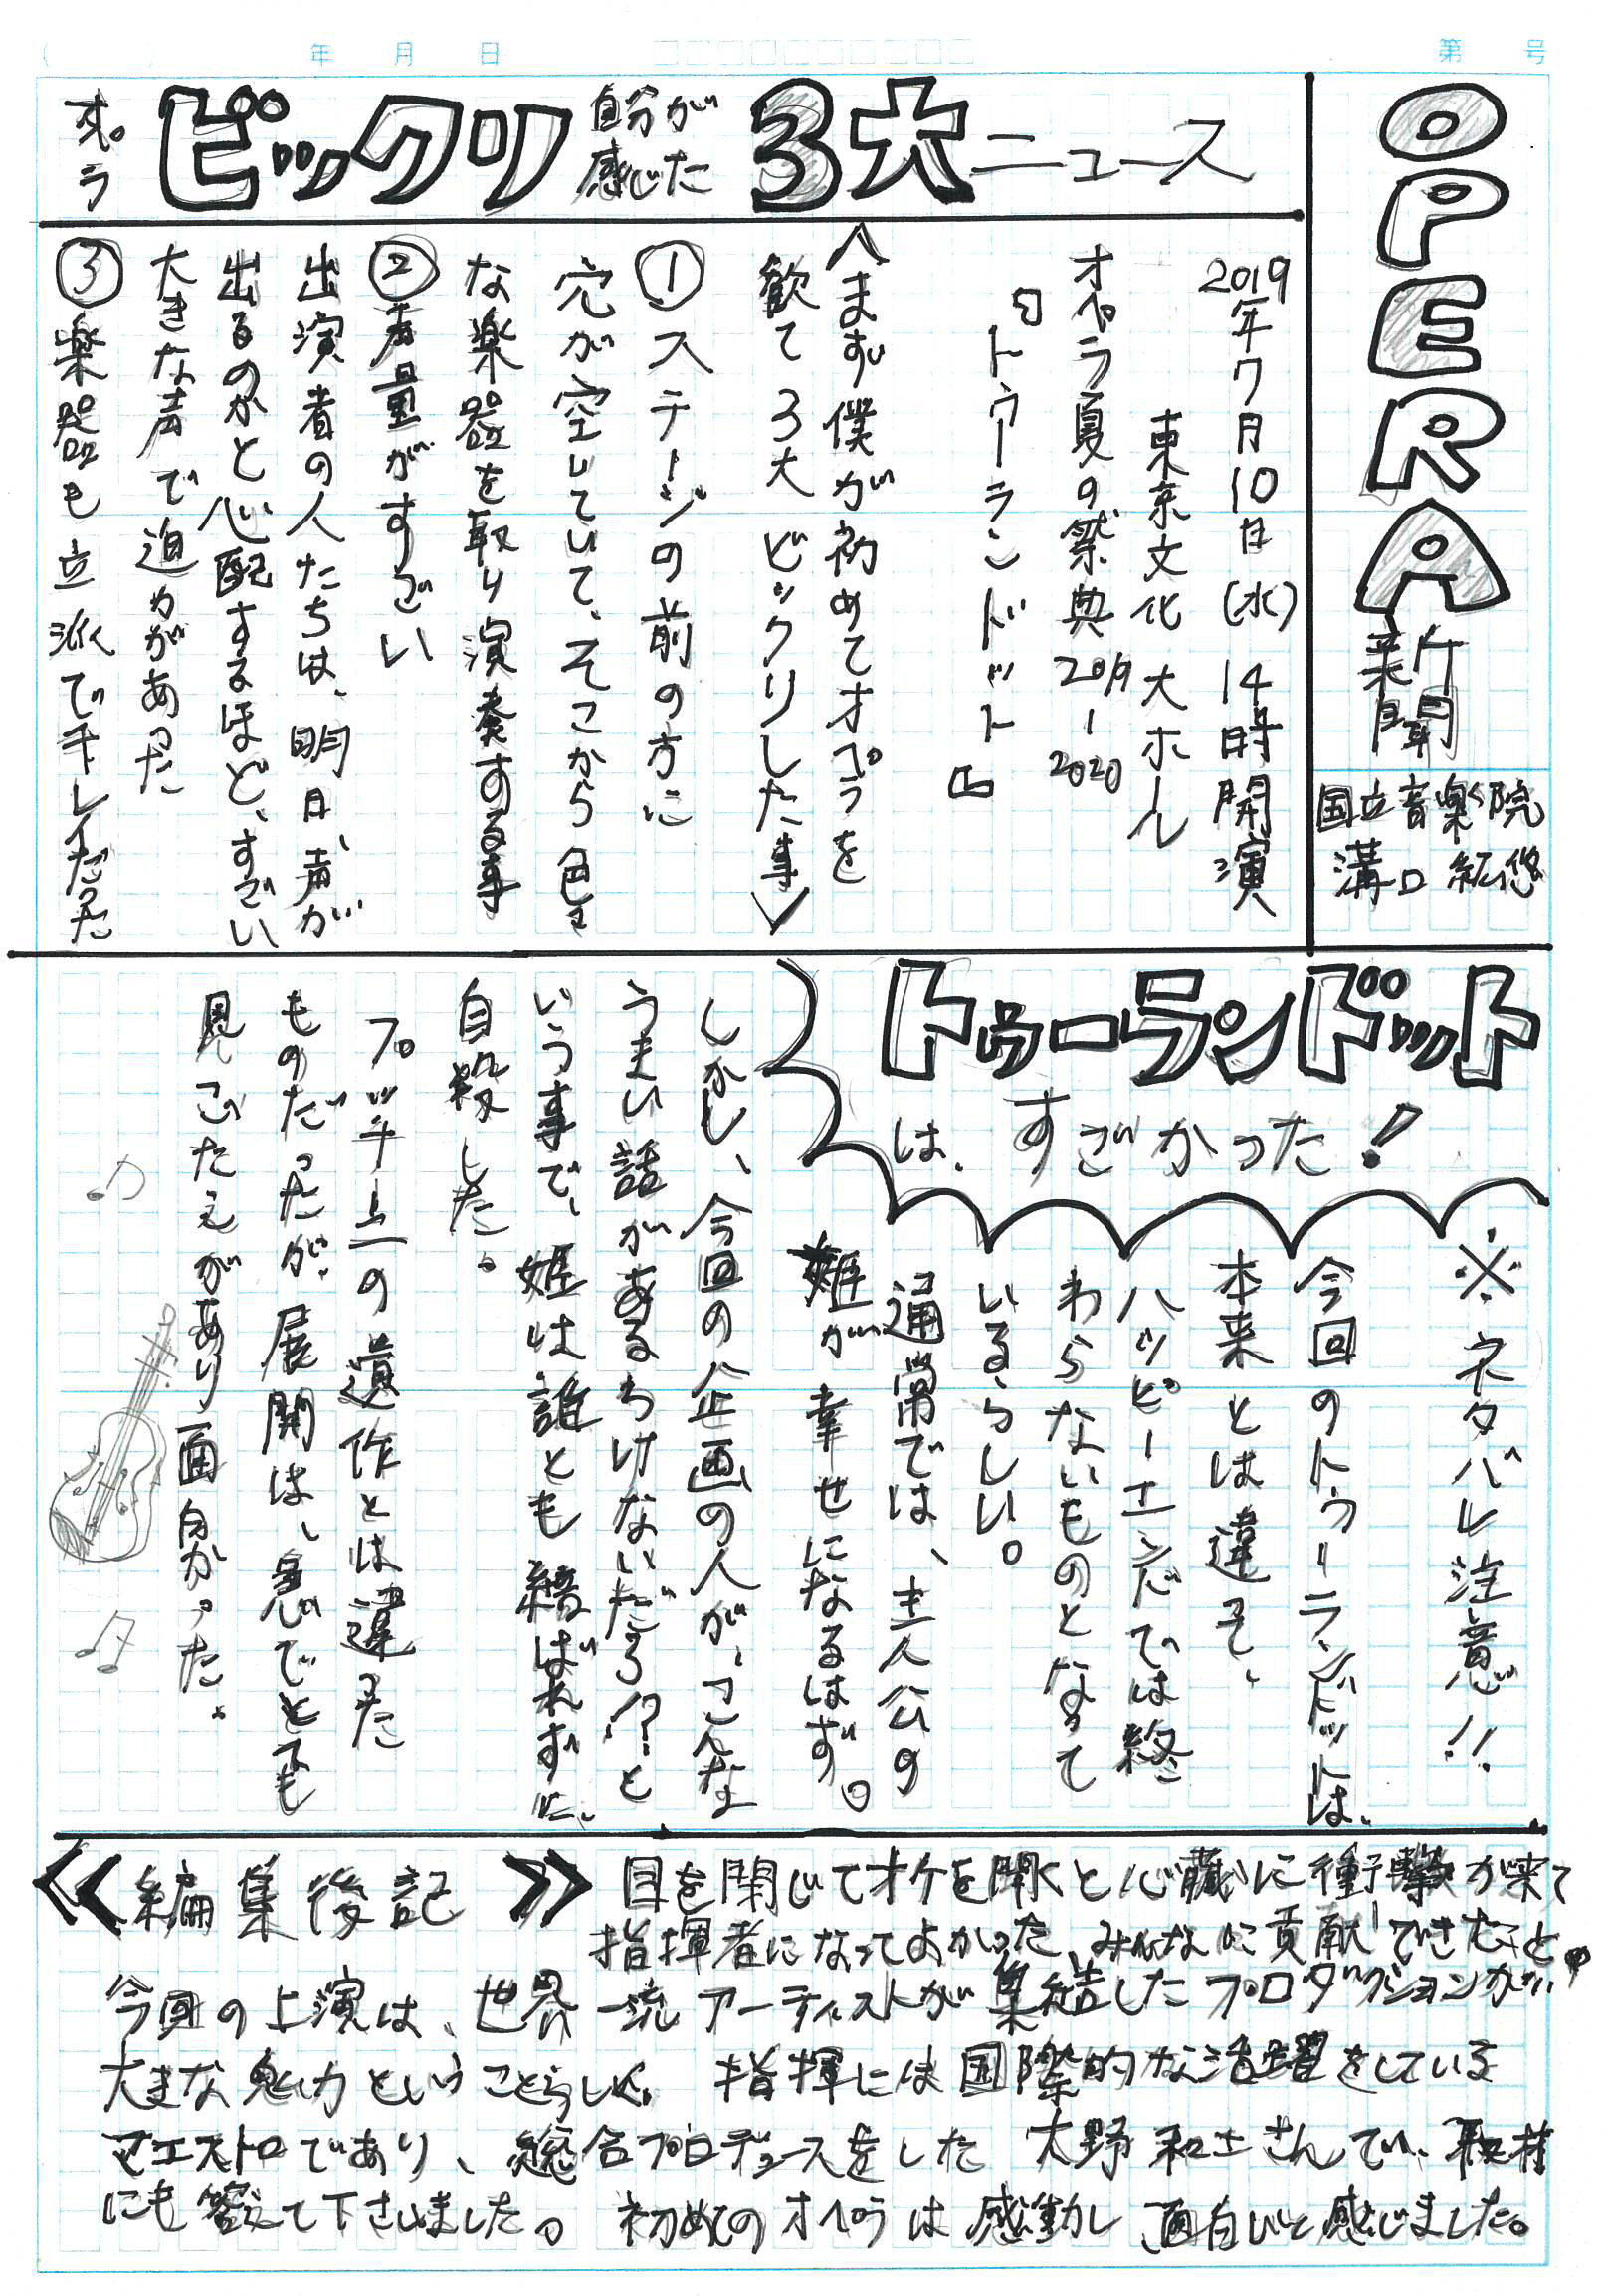 年 月 日
第 号
OPERA
新聞
国立音楽院
溝口 紘悠
オペラ ビックリ 自分が感じた 3大ニュース
2019年7月10日(水) 14時開演
東京文化 大ホール
オペラ夏の祭典2019-2020
『トゥーランドット』
〈まず僕が初めてオペラを
歓て3大ビックリした事〉
①ステージの前の方に
穴が空いていて、そこから色々
な楽器を取り演奏する事
②声量がすごい
出演者の人たちは、明日、声が
出るのかと心配するほど、すごい
大きな声で迫力があった
③楽器も立派でキレイだった
トゥーランドット
は、すごかった!
※ネタバレ注意!!
今回のトゥーランドットは、
本来とは違って、
ハッピーエンドでは終
わらないものとなって
いるらしい。
通常では、主人公の
姫が幸せになるはず。
しかし、今回の企画の人が、こんな
うまい話があるわけないだろう!?と
いう事で、姫は誰とも結ばれずに、
自殺した。
プッチーニの遺作とは違った
ものだったが、展開は、急でとても
見ごたえがあり面白かった。
≪編集後記≫
目を閉じてオケを聞くと心臓に衝撃が来て
指揮者になってよかった、みんなに貢献できたこと。
今回の上演は、世界一流アーティストが集結したプロダクションが、
大きな魅力ということらしく、指揮には国際的な活躍をしている
マエストロであり、総合プロデュースをした 大野和士さんで、取材
にも答えて下さいました。初めてのオペラは感動し、面白いと感じました。